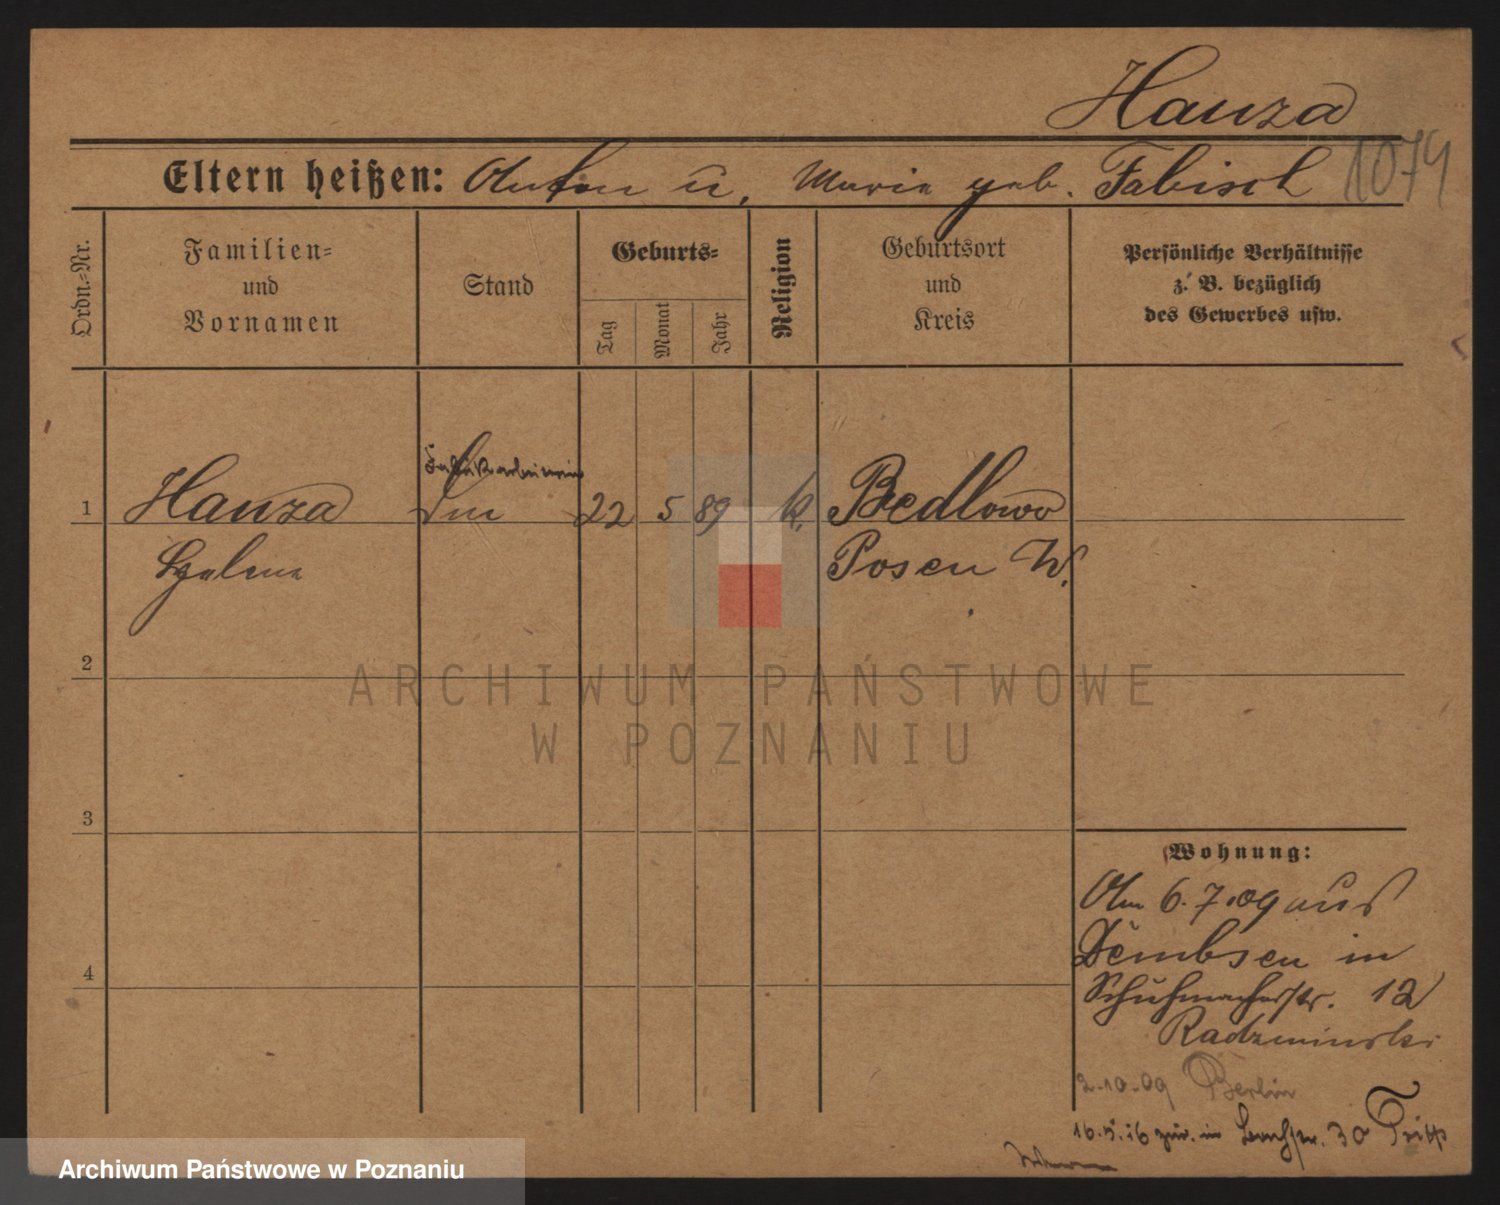 Hauza
Eltern heißen: Anton u. Marie geb. Fabisch 1074
Ordn.-Nr.
Familien=
und
Vornamen
Stand
Geburts=
Tag
Monat
Jahr
Religion
Geburtsort
und
Kreis
Persönliche Verhältnisse
z. B. bezüglich
des Gewerbes usw.
Fabrikarbeiterin
1 Hauza 22 5 89 k. Bedlowo
Helene Posen W.
2
3
4
Wohnung:
Am 6.7.09 aus
Dembsen in
Schuhmacherstr. 12
Radzminski
2-10-09 Berlin
16.5.16 zur. in 30
ARCHIWUM PAŃSTWOWE
W POZNANIU
Archiwum Państwowe w Poznaniu